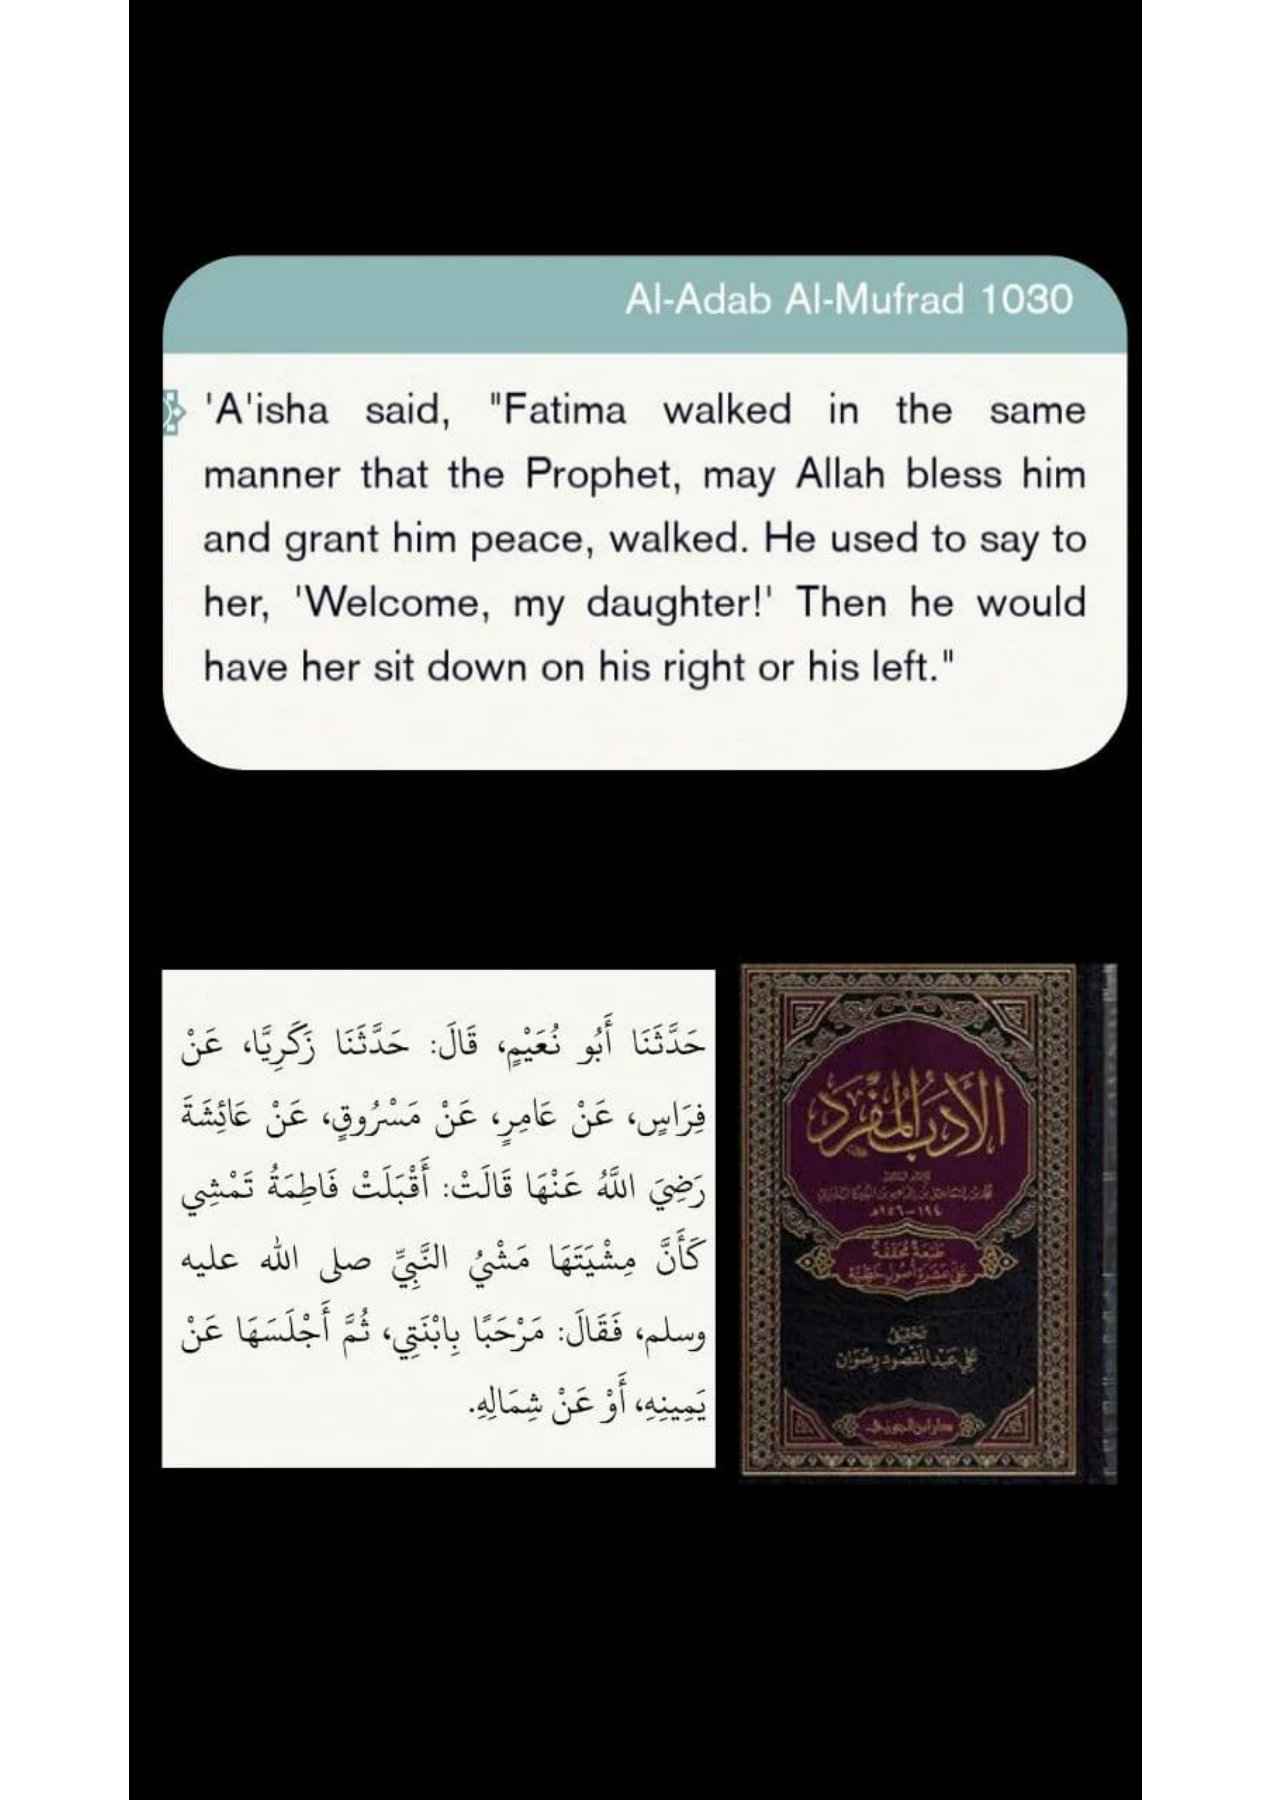 Al-Adab Al-Mufrad 1030
'A'isha said, "Fatima walked in the same
manner that the Prophet, may Allah bless him
and grant him peace, walked. He used to say to
her, 'Welcome, my daughter!' Then he would
have her sit down on his right or his left."
حَدَّثَنَا أَبُو نُعَيْمٍ، قَالَ: حَدَّثَنَا زَكَرِيَّا، عَنْ
فِرَاسٍ، عَنْ عَامِرٍ، عَنْ مَسْرُوقٍ، عَنْ عَائِشَةَ
رَضِيَ اللَّهُ عَنْهَا قَالَتْ: أَقْبَلَتْ فَاطِمَةُ تَمْشِي
كَأَنَّ مِشْيَتَهَا مَشْيُ النَّبِيِّ صلى الله عليه
وسلم، فَقَالَ: مَرْحَبًا بِابْنَتِي، ثُمَّ أَجْلَسَهَا عَنْ
يَمِينِهِ، أَوْ عَنْ شِمَالِهِ.
الأدب المفرد
١٩٤ - ٢٥٦هـ
طبعة محققة
تحقيق
علي عبد المقصود رضوان
دار ابن الجوزي